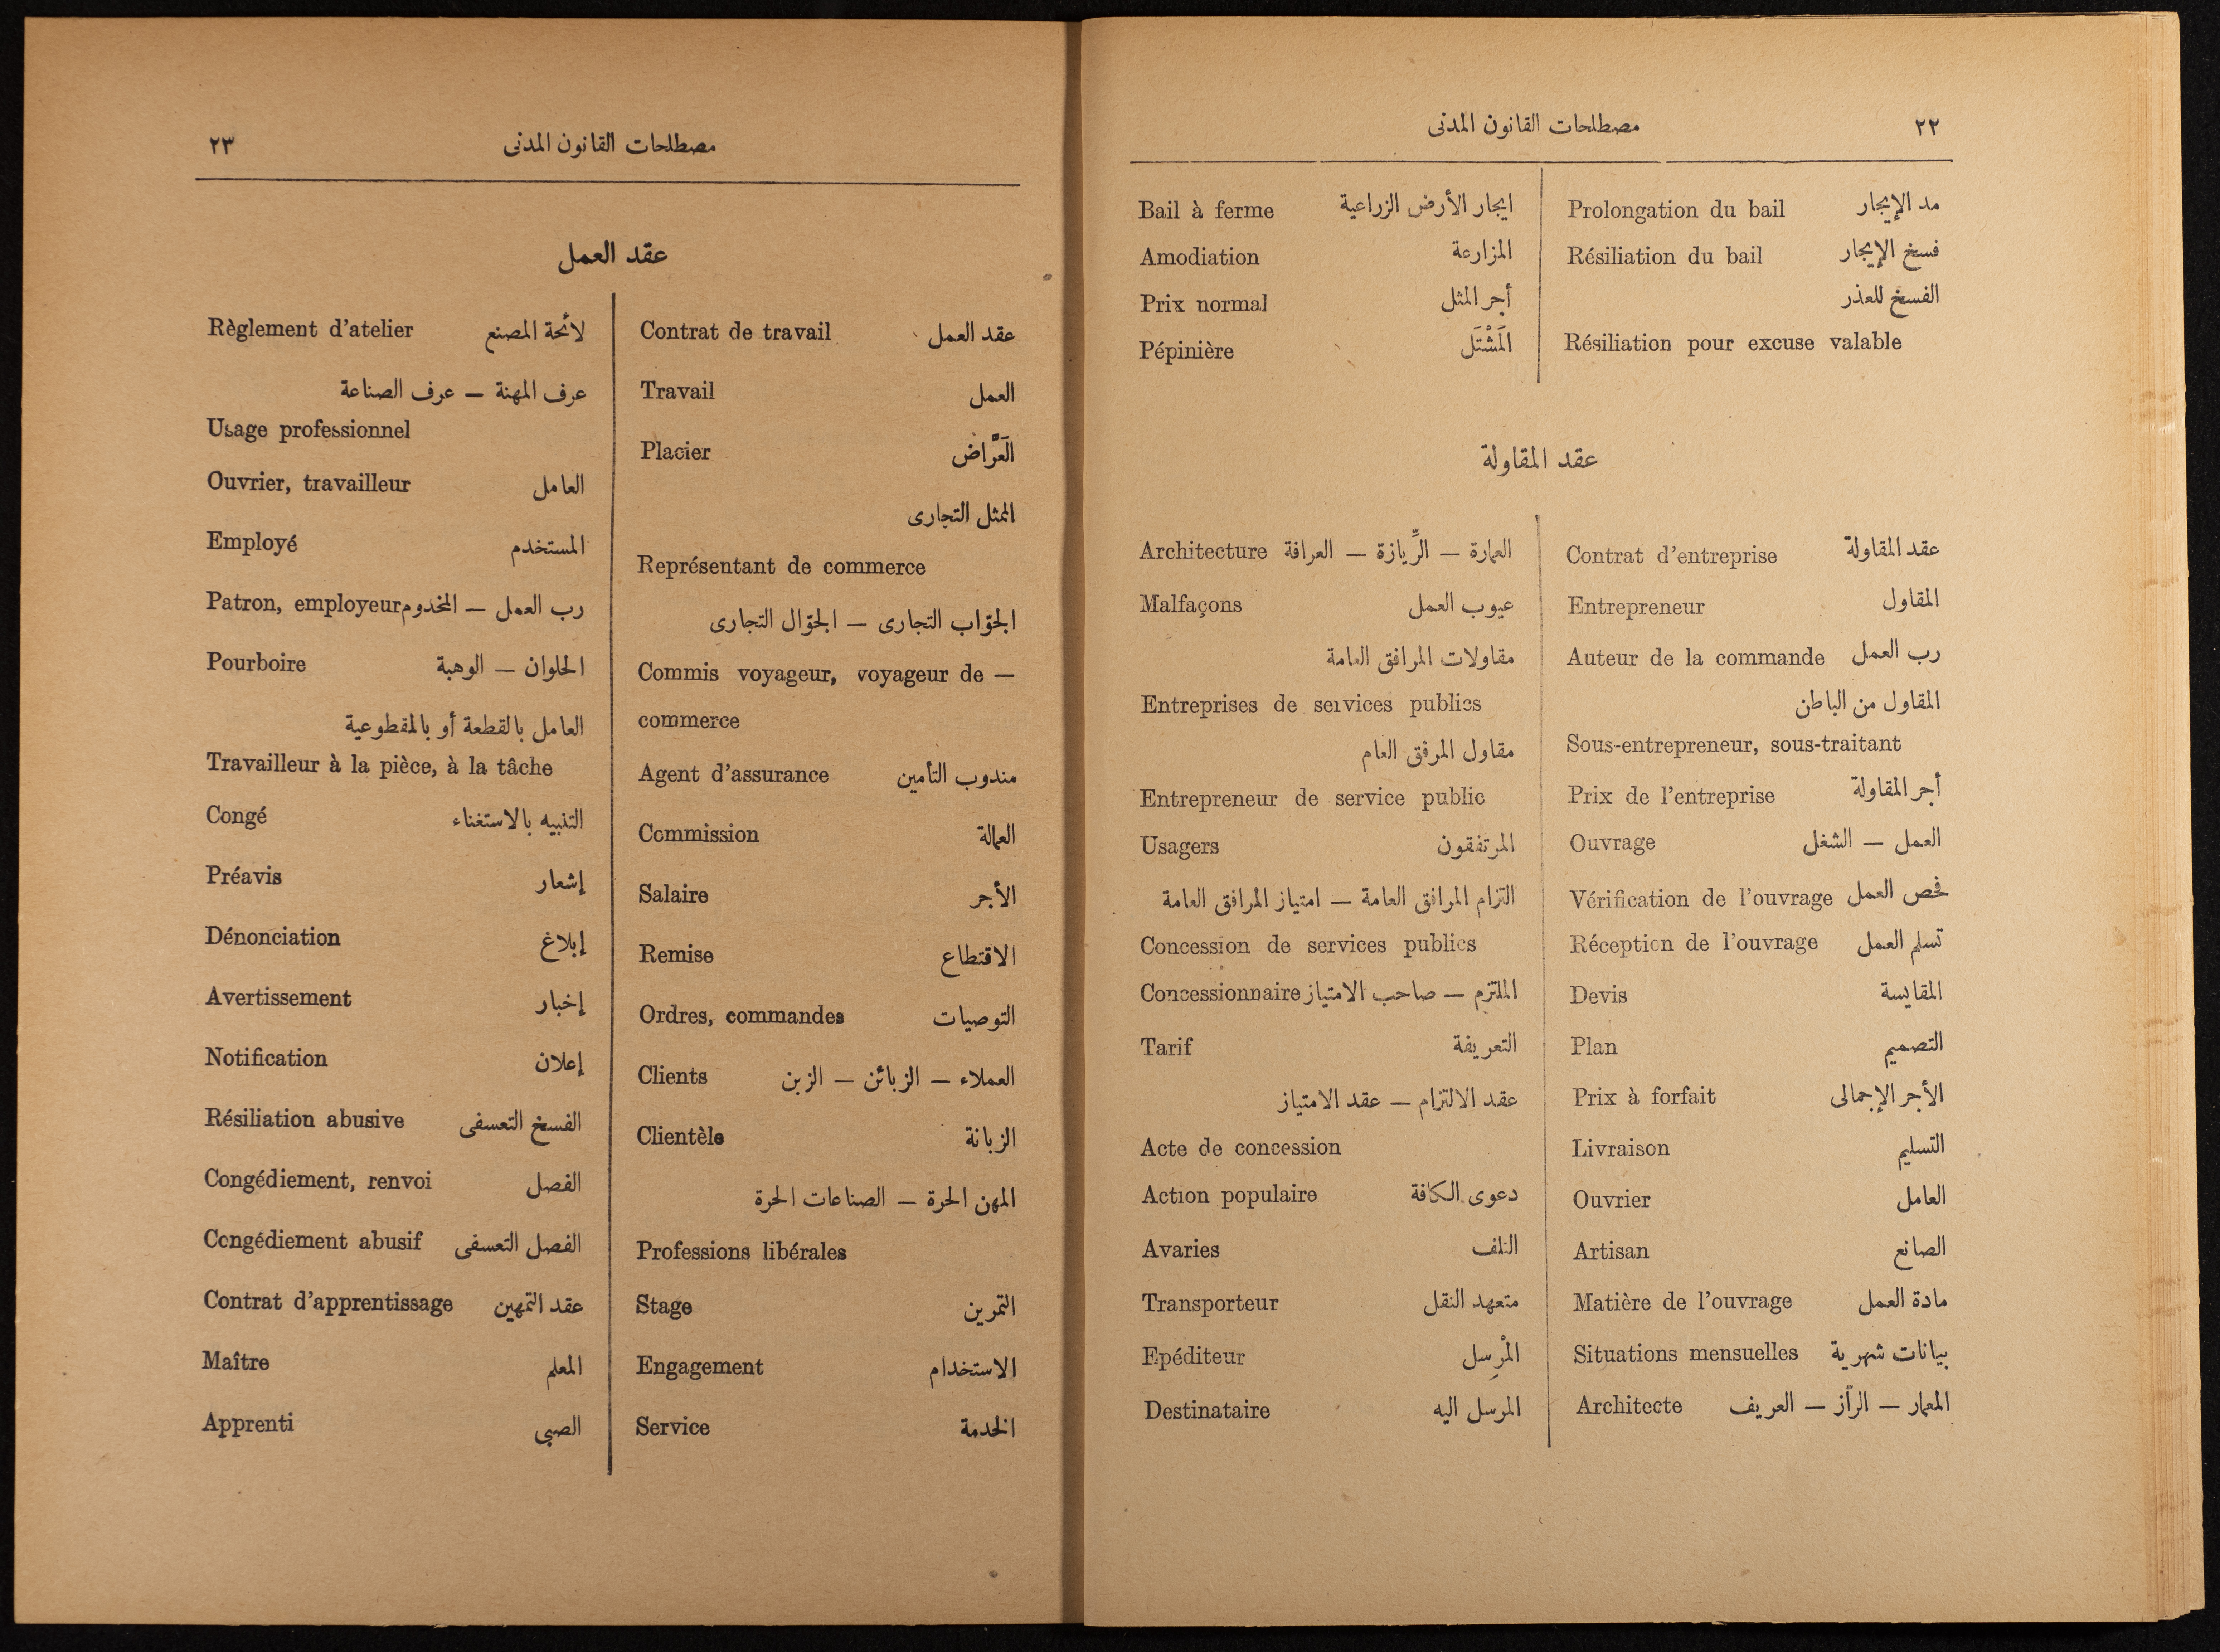 ٢٢
مصطلحات القانون المدنى
مد الإيجار Prolongation du bail
فسخ الإيجار Résiliation du bail
الفسخ للعذر
Résiliation pour excuse valable
ايجار الأرض الزراعية Bail à ferme
المزارعة Amodiation
أجر المثل Prix normal
المَشْتَل Pépinière
عقد المقاولة
عقد المقاولة Contrat d'entreprise
المقاول Entrepreneur
رب العمل Auteur de la commande
المقاول من الباطن
Sous-entrepreneur, sous-traitant
أجر المقاولة Prix de l'entreprise
العمل — الشغل Ouvrage
فحص العمل Vérification de l'ouvrage
تسلم العمل Réception de l'ouvrage
المقايسة Devis
التصميم Plan
الأجر الإجمالى Prix à forfait
التسليم Livraison
العامل Ouvrier
الصانع Artisan
مادة العمل Matière de l'ouvrage
بيانات شهرية Situations mensuelles
المعمار — الرّاز — العريف Architecte
العمارة — الرِّيازة — العرافة Architecture
عيوب العمل Malfaçons
مقاولات المرافق العامة
Entreprises de services publics
مقاول المرفق العام
Entrepreneur de service public
المرتفقون Usagers
التزام المرافق العامة — امتياز المرافق العامة
Concession de services publics
الملتزم — صاحب الامتياز Concessionnaire
التعريفة Tarif
عقد الالتزام — عقد الامتياز
Acte de concession
دعوى الكافة Action populaire
التلف Avaries
متعهد النقل Transporteur
المْرسِل Epéditeur
المرسَل اليه Destinataire
٢٣
مصطلحات القانون المدنى
عقد العمل
عقد العمل Contrat de travail
العمل Travail
العَرَّاض Placier
الممثل التجارى
Représentant de commerce
الجوّاب التجارى — الجوّال التجارى
Commis voyageur, voyageur de —
commerce
مندوب التأمين Agent d'assurance
العمالة Commission
الأجر Salaire
الاقتطاع Remise
التوصيات Ordres, commandes
العملاء — الزبائن — الزبن Clients
الزبانة Clientèle
المهن الحرة — الصناعات الحرة
Professions libérales
التمرين Stage
الاستخدام Engagement
الخدمة Service
لائحة المصنع Règlement d'atelier
عرف المهنة — عرف الصناعة
Usage professionnel
العامل Ouvrier, travailleur
المستخدم Employé
رب العمل — المخدوم Patron, employeur
الحلوان — الوهبة Pourboire
العامل بالقطعة أو بالمقطوعية
Travailleur à la pièce, à la tâche
التنبيه بالاستغناء Congé
إشعار Préavis
إبلاغ Dénonciation
إخبار Avertissement
إعلان Notification
الفسخ التعسفى Résiliation abusive
الفصل Congédiement, renvoi
الفصل التعسفى Congédiement abusif
عقد التمهين Contrat d'apprentissage
المعلم Maître
الصبى Apprenti